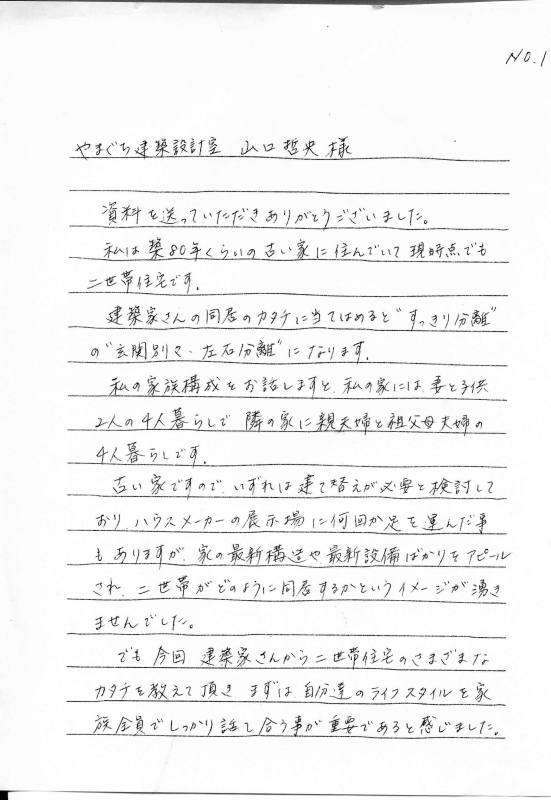 NO.1
やまぐち建築設計室 山口哲央様
資料を送っていただきありがとうございました。
私は築80年くらいの古い家に住んでいて現時点でも
二世帯住宅です。
建築家さんの同居のカタチに当てはめると"すっきり分離"
の"玄関別々・左右分離"になります。
私の家族構成をお話しますと、私の家には、妻と子供
2人の4人暮らしで 隣の家に親夫婦と祖父母夫婦の
4人暮らしです。
古い家ですので、いずれは建て替えが必要と検討して
おり、ハウスメーカーの展示場に何回か足を運んだ事
もありますが、家の最新構造や最新設備ばかりをアピール
され、二世帯がどのように同居するかというイメージが湧き
ませんでした。
でも今回 建築家さんから二世帯住宅のさまざまな
カタチを教えて頂き まずは自分達のライフスタイルを家
族全員でしっかり話し合う事が重要であると感じました。